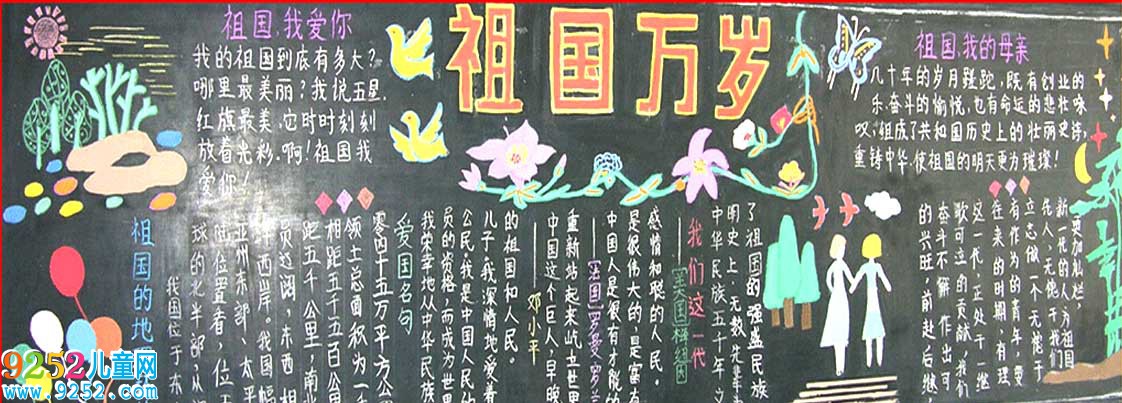 祖国万岁
祖国,我爱你
我的祖国到底有多大?
哪里最美丽?我说五星
红旗最美,它时时刻刻
放着光彩.啊!祖国我
爱你!
祖国的地
我国位于东
球的北半部从
陆位置看,位
亚洲东部、太平
西岸。我国幅
员辽阔,东西相
距五千公里,南北
相距五千五百公里
领土总面积为一千
零四十五万平方公
爱国名句
我荣幸地从中华民族
员的资格,而成为世界
公民,我是中国人民的
儿子.我深情地爱着
的祖国和人民。
—邓小平
中国这个巨人早晚
重新站起来屹立世界
—[法国]罗曼·罗兰
中国人是很有才能的
是很伟大的,是富有
感情和聪的人民。
我们这一代
中华民族五千年文
明史上,无数先辈
了祖国的强盛民族
的兴旺,前赴后继
奋斗不解,作出可
歌可立的贡献,我们
这一代,正处于一继
在来的时期,有理
有作为的青年,要
立志做一个无愧于
优人,无他
新一代的人,为祖国
更加灿烂,
祖国,我的母亲
几十年的岁月蹉跎,既有创业的
乐,奋斗的愉悦,也有命运的悲壮咏
叹,组成了共和国历史上的壮丽史诗,
重铸中华.使祖国的明天更为璀璨!
9252儿童网
www.9252.com